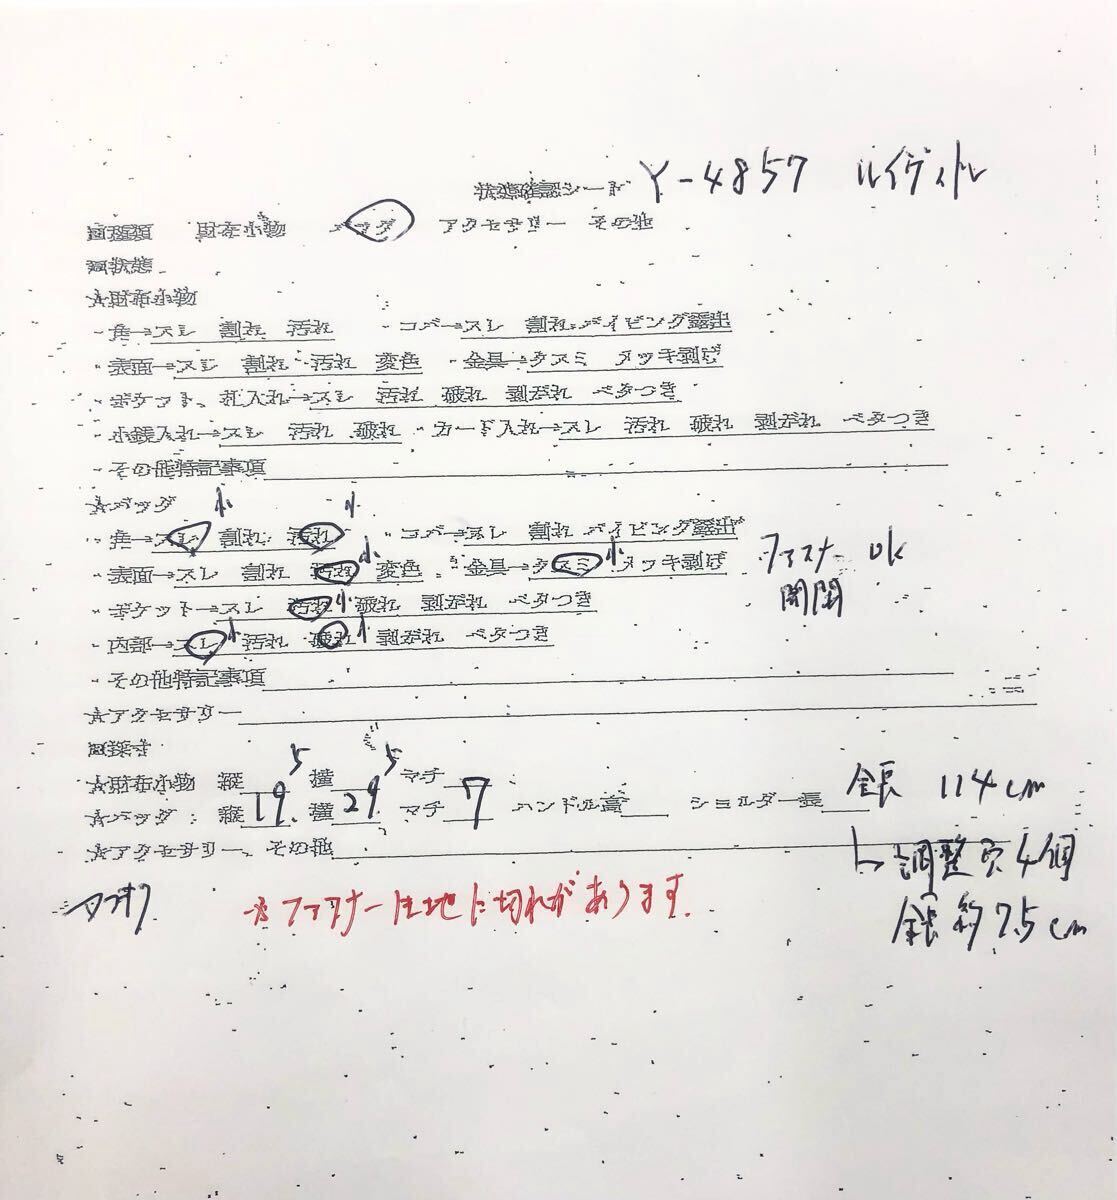 状態確認シート Y-4857 ルイヴィトン
■種類 財布小物 バッグ アクセサリー その他
■状態
★財布小物
・角→スレ 割れ 汚れ ・コバ→スレ 割れ パイピング露出
・表面→スレ 割れ 汚れ 変色 ・金具→クスミ メッキ剥げ
・ポケット、札入れ→スレ 汚れ 破れ 剥がれ ベタつき
・小銭入れ→スレ 汚れ 破れ ・カード入れ→スレ 汚れ 破れ 剥がれ ベタつき
・その他特記事項
★バッグ 小 小
・角→スレ 割れ 汚れ ・コバ→スレ 割れ パイピング露出
・表面→スレ 割れ 汚れ 小 変色 ・金具→クスミ 小 メッキ剥げ ファスナー OK
・ポケット→スレ 汚れ 小 破れ 剥がれ ベタつき 開閉
・内部→スレ 小 汚れ 破れ 小 剥がれ ベタつき
・その他特記事項
★アクセサリー
■採寸
★財布小物 縦 横 マチ
★バッグ:縦 19.5 横 29.5 マチ 7 ハンドル高 ショルダー長 全長 114cm
★アクセサリー、その他 調整穴4個
ヤフオク ※ファスナー生地に切れがあります。 全長約7.5cm